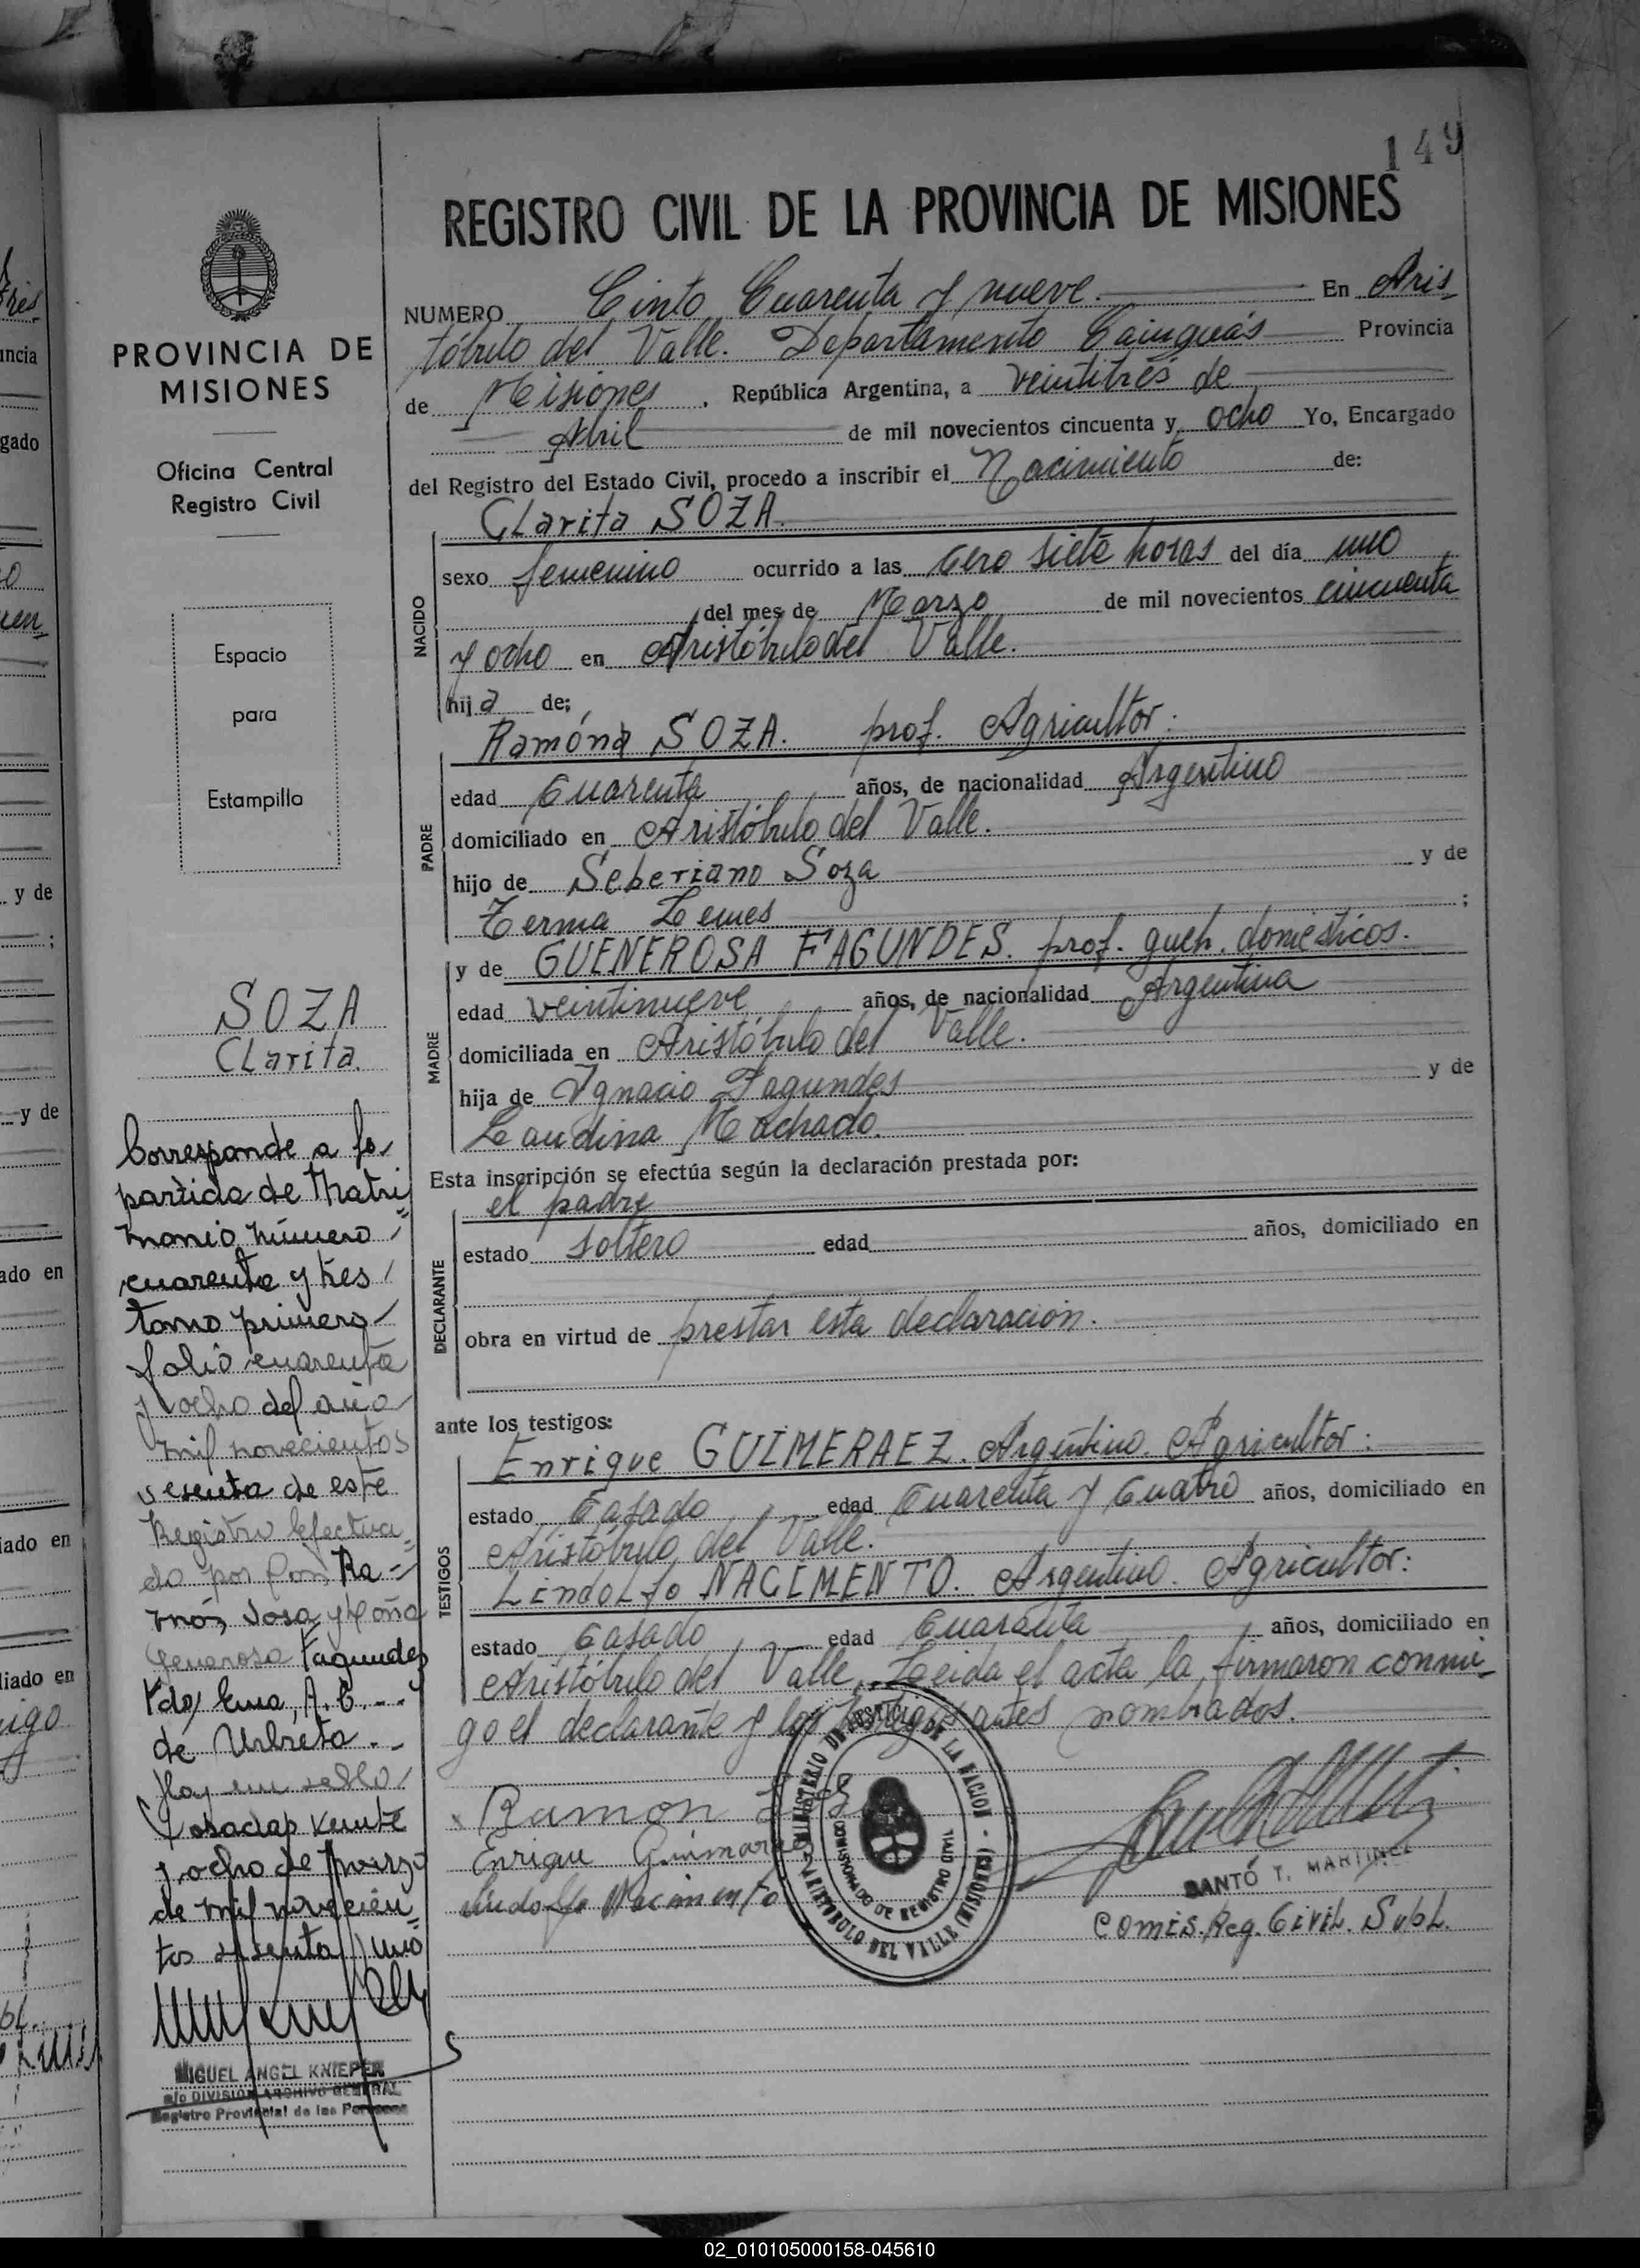 149
REGISTRO CIVIL DE LA PROVINCIA DE MISIONES
NUMERO Cinto Cuarenta y nueve. En Aris
tóbulo del Valle. Departamento Cainguás Provincia
de Misiones, República Argentina, a veintitrés de
Abril de mil novecientos cincuenta y ocho Yo, Encargado
del Registro del Estado Civil, procedo a inscribir el Nacimiento de:
NACIDO
Clarita SOZA.
sexo femenino ocurrido a las cero siete horas del día uno
del mes de Marzo de mil novecientos cincuenta
y ocho en Aristóbulo del Valle.
hija de;
PADRE
Ramóna SOZA. prof. Agricultor:
edad Cuarenta años, de nacionalidad Argentino
domiciliado en Aristóbulo del Valle.
hijo de Seberiano Soza y de
Terma Lemes ;
MADRE
y de GUENEROSA FAGUNDES. prof. queh. domésticos.
edad veintinueve años, de nacionalidad Argentina
domiciliada en Aristóbulo del Valle.
hija de Ignacio Fagundes y de
Laudina Machado.
Esta inscripción se efectúa según la declaración prestada por:
DECLARANTE
el padre
estado soltero edad años, domiciliado en
obra en virtud de prestar esta declaración.
ante los testigos:
TESTIGOS
Enrique GUIMERAEZ. Argentino. Agricultor:
estado Casado edad Cuarenta y Cuatro años, domiciliado en
Aristóbulo del Valle.
Lindolfo NACIMENTO. Argentino. Agricultor:
estado Casado edad Cuaranta años, domiciliado en
Aristóbulo del Valle. Leida el acta la firmaron conmi
go el declarante y los nombrados.
Ramon
Enrique
Lindolfo Nacimento
MINISTERIO DE JUSTICIA DE LA NACION - ARISTOBULO DEL VALLE (MISIONES)
COMISIONADO DE REGISTRO CIVIL
SANTO T. MARTINEZ
Comis. Reg. Civil. Subl.
PROVINCIA DE
MISIONES
Oficina Central
Registro Civil
Espacio
para
Estampilla
SOZA
Clarita.
Corresponde a la
partida de Matri
monio número
cuarenta y tres
tomo primero
folio cuarenta
y ocho del año
mil novecientos
sesenta de este
Registro efectua
do por Don Ra=
món Sosa y Doña
Generosa Fagundes
de Urbieta.
Hay un sello
Posadas veinte
y ocho de marzo
de mil novecien
tos sesenta y uno
MIGUEL ANGEL KNIEPER
a/c DIVISION ARCHIVO GENERAL
Registro Provincial de las Personas
02_010105000158-045610